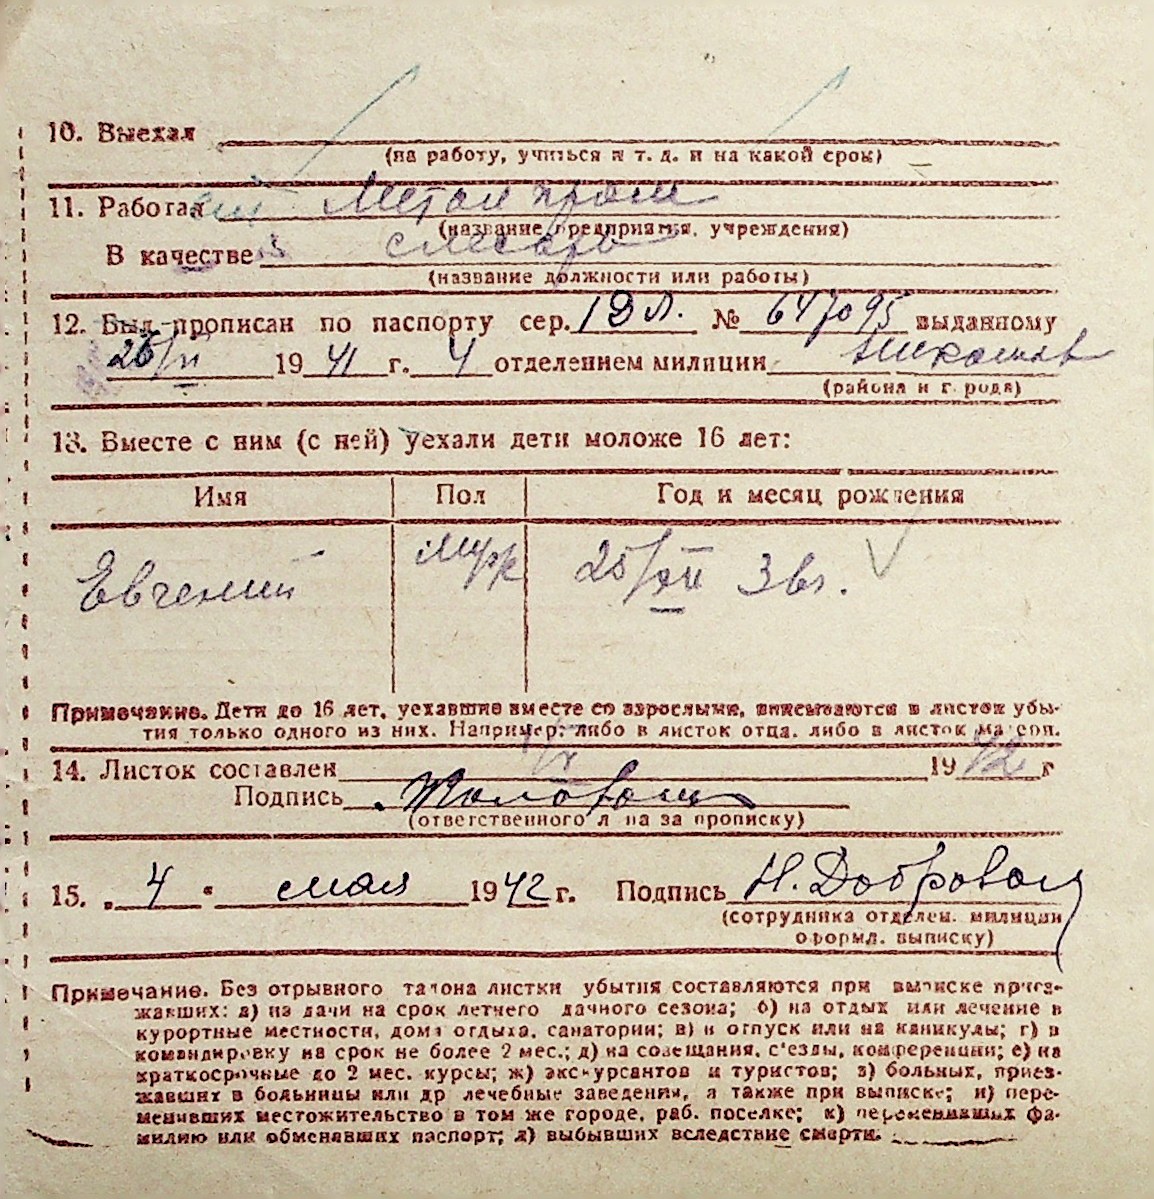 10. Выехал
(на работу, учиться и т. д. и на какой срок)
11. Работал Метал пром
(название предприятия, учреждения)
В качестве слесарь
(название должности или работы)
12. Был прописан по паспорту сер. № 647095 выданному
26/VI 1941 г. 4 отделением милиции
(района и города)
13. Вместе с ним (с ней) уехали дети моложе 16 лет:
Имя Пол Год и месяц рождения
Евгений муж 25/XII
Примечание. Дети до 16 лет, уехавшие вместе со взрослыми, вписываются в листок убы-
тия только одного из них. Например: либо в листок отца, либо в листок матери.
14. Листок составлен 1942 г
Подпись
(ответственного лица за прописку)
15. „ 4 “ мая 1942 г. Подпись Н. Добровол
(сотрудника отделен. милиции
оформл. выписку)
Примечание. Без отрывного талона листки убытия составляются при выписке приез-
жавших: а) на дачи на срок летнего дачного сезона; б) на отдых или лечение в
курортные местности, дома отдыха, санатории; в) в отпуск или на каникулы; г) в
командировку на срок не более 2 мес.; д) на совещания, с'езды, конференции; е) на
краткосрочные до 2 мес. курсы; ж) экскурсантов и туристов; з) больных, приез-
жавших в больницы или др лечебные заведения, а также при выписке; и) пере-
менивших местожительство в том же городе, раб. поселке; к) переменивших фа-
милию или обменявших паспорт; л) выбывших вследствие смерти.